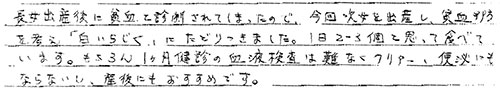 長女出産後に貧血と診断されてしまったので、今回次女を出産し、貧血予防
を考え「白いちじく」にたどりつきました。1日2~3個と思って食べて
います。もちろん1ヶ月健診の血液検査は難なくクリアー、便泌にも
ならないし、産後にもおすすめです。